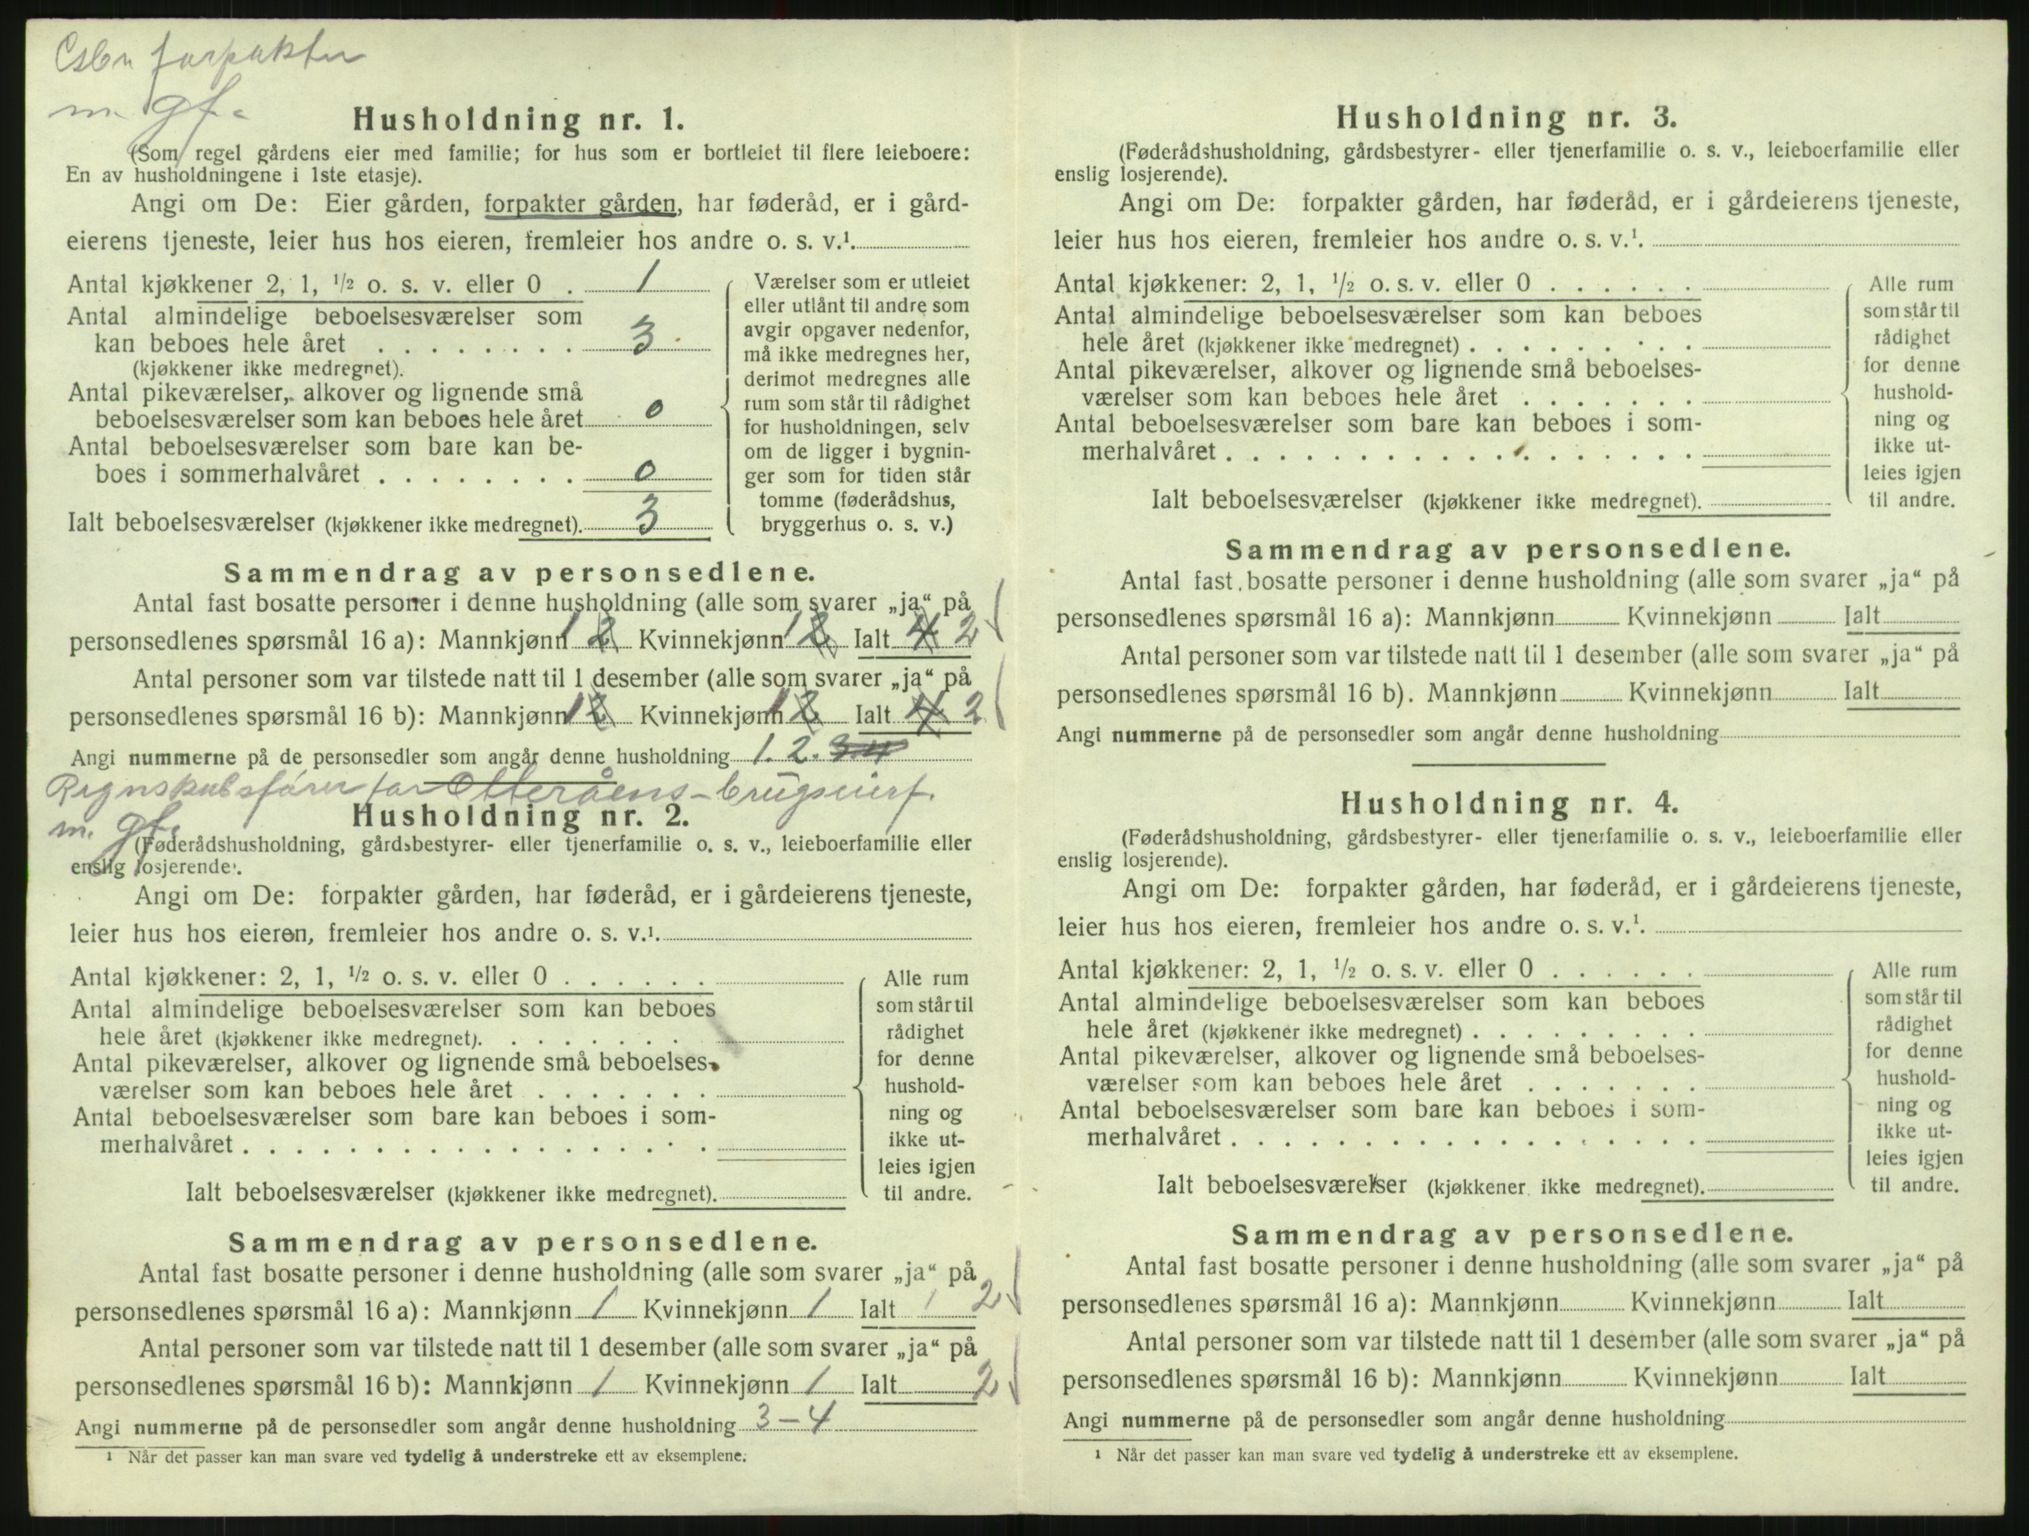 forpakter
m. gf.
Husholdning nr. 1.
(Som regel gårdens eier med familie; for hus som er bortleiet til flere leieboere:
En av husholdningene i 1ste etasje).
Angi om De: Eier gården, forpakter gården, har føderåd, er i gård-
eierens tjeneste, leier hus hos eieren, fremleier hos andre o. s. v.¹
Antal kjøkkener 2, 1, ½ o. s. v. eller 0 . 1
Antal almindelige beboelsesværelser som
kan beboes hele året . . . . . . . . 3
(kjøkkener ikke medregnet).
Antal pikeværelser, alkover og lignende små
beboelsesværelser som kan beboes hele året 0
Antal beboelsesværelser som bare kan be-
boes i sommerhalvåret . . . . . . . . 0
Ialt beboelsesværelser (kjøkkener ikke medregnet). 3
Værelser som er utleiet
eller utlånt til andre som
avgir opgaver nedenfor,
må ikke medregnes her,
derimot medregnes alle
rum som står til rådighet
for husholdningen, selv
om de ligger i bygnin-
ger som for tiden står
tomme (føderådshus,
bryggerhus o. s. v.)
Sammendrag av personsedlene.
Antal fast bosatte personer i denne husholdning (alle som svarer „ja“ på
personsedlenes spørsmål 16 a): Mannkjønn 1 2 Kvinnekjønn 1 2 Ialt 4 2
Antal personer som var tilstede natt til 1 desember (alle som svarer „ja“ på
personsedlenes spørsmål 16 b): Mannkjønn 1 2 Kvinnekjønn 1 2 Ialt 4 2
Angi nummerne på de personsedler som angår denne husholdning 1. 2. 3.4
Regnskabsfører for Otteråens brugseierf.
m. gf.
Husholdning nr. 2.
(Føderådshusholdning, gårdsbestyrer- eller tjenerfamilie o. s. v., leieboerfamilie eller
enslig losjerende).
Angi om De: forpakter gården, har føderåd, er i gårdeierens tjeneste,
leier hus hos eieren, fremleier hos andre o. s. v.¹.
Antal kjøkkener: 2, 1, ½ o. s. v. eller 0 . . . . . .
Antal almindelige beboelsesværelser som kan beboes
hele året (kjøkkener ikke medregnet). . . . . . . .
Antal pikeværelser, alkover og lignende små beboelses-
værelser som kan beboes hele året . . . . . . .
Antal beboelsesværelser som bare kan beboes i som-
merhalvåret . . . . . . . . . . . . . . . . . .
Ialt beboelsesværelser (kjøkkener ikke medregnet).
Alle rum
som står til
rådighet
for denne
hushold-
ning og
ikke ut-
leies igjen
til andre.
Sammendrag av personsedlene.
Antal fast bosatte personer i denne husholdning (alle som svarer „ja“ på
personsedlenes spørsmål 16 a): Mannkjønn 1 Kvinnekjønn 1 Ialt 2
Antal personer som var tilstede natt til 1 desember (alle som svarer „ja“ på
personsedlenes spørsmål 16 b): Mannkjønn 1 Kvinnekjønn 1 Ialt 2
Angi nummerne på de personsedler som angår denne husholdning 3-4
¹ Når det passer kan man svare ved tydelig å understreke ett av eksemplene.
Husholdning nr. 3.
(Føderådshusholdning, gårdsbestyrer- eller tjenerfamilie o. s. v., leieboerfamilie eller
enslig losjerende).
Angi om De: forpakter gården, har føderåd, er i gårdeierens tjeneste,
leier hus hos eieren, fremleier hos andre o. s. v.¹.
Antal kjøkkener: 2, 1, ½ o. s. v. eller 0 . . . . . .
Antal almindelige beboelsesværelser som kan beboes
hele året (kjøkkener ikke medregnet) . . . . . . . . .
Antal pikeværelser, alkover og lignende små beboelses-
værelser som kan beboes hele året . . . . . . .
Antal beboelsesværelser som bare kan beboes i som-
merhalvåret . . . . . . . . . . . . . . . . . .
Ialt beboelsesværelser (kjøkkener ikke medregnet).
Alle rum
som står til
rådighet
for denne
hushold-
ning og
ikke ut-
leies igjen
til andre.
Sammendrag av personsedlene.
Antal fast bosatte personer i denne husholdning (alle som svarer „ja“ på
personsedlenes spørsmål 16 a): Mannkjønn Kvinnekjønn Ialt
Antal personer som var tilstede natt til 1 desember (alle som svarer „ja“ på
personsedlenes spørsmål 16 b). Mannkjønn Kvinnekjønn Ialt
Angi nummerne på de personsedler som angår denne husholdning
Husholdning nr. 4.
(Føderådshusholdning, gårdsbestyrer- eller tjenerfamilie o. s. v., leieboerfamilie eller
enslig losjerende).
Angi om De: forpakter gården, har føderåd, er i gårdeierens tjeneste,
leier hus hos eieren, fremleier hos andre o. s. v.¹.
Antal kjøkkener: 2, 1, ½ o. s. v. eller 0 . . . . . .
Antal almindelige beboelsesværelser som kan beboes
hele året (kjøkkener ikke medregnet) . . . . . . . . .
Antal pikeværelser, alkover og lignende små beboelses-
værelser som kan beboes hele året . . . . . . .
Antal beboelsesværelser som bare kan beboes i som-
merhalvåret . . . . . . . . . . . . . . . . . .
Ialt beboelsesværelser (kjøkkener ikke medregnet).
Alle rum
som står til
rådighet
for denne
hushold-
ning og
ikke ut-
leies igjen
til andre.
Sammendrag av personsedlene.
Antal fast bosatte personer i denne husholdning (alle som svarer „ja“ på
personsedlenes spørsmål 16 a): Mannkjønn Kvinnekjønn Ialt
Antal personer som var tilstede natt til 1 desember (alle som svarer „ja“ på
personsedlenes spørsmål 16 b): Mannkjønn Kvinnekjønn Ialt
Angi nummerne på de personsedler som angår denne husholdning
¹ Når det passer kan man svare ved tydelig å understreke ett av eksemplene.